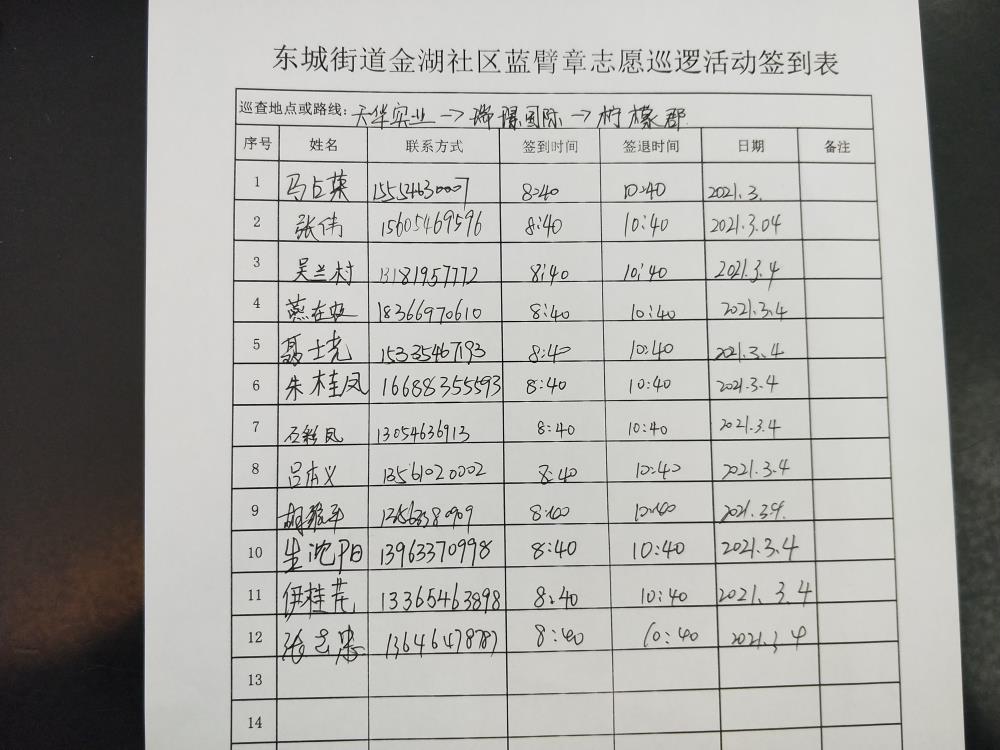 东城街道金湖社区蓝臂章志愿巡逻活动签到表
巡查地点或路线: 天华实业→瑞璟国际→柠檬郡
序号 姓名 联系方式 签到时间 签退时间 日期 备注
1 马占英 15554630007 8:40 10:40 2021.3.
2 张伟 15605469596 8:40 10:40 2021.3.04
3 吴兰村 13181957772 8:40 10:40 2021.3.4
4 燕在 18366970610 8:40 10:40 2021.3.4
5 聂士尧 15335467193 8:40 10:40 2021.3.4
6 朱桂凤 16688355593 8:40 10:40 2021.3.4
7 石彩凤 13054636913 8:40 10:40 2021.3.4
8 吕本义 13561020002 8:40 10:40 2021.3.4
9 胡 8:40 10:40 2021.3.4
10 生沈阳 13963370998 8:40 10:40 2021.3.4
11 伊桂芹 13365463898 8:40 10:40 2021.3.4
12 张 忠 13646478787 8:40 10:40 2021.3.4
13
14